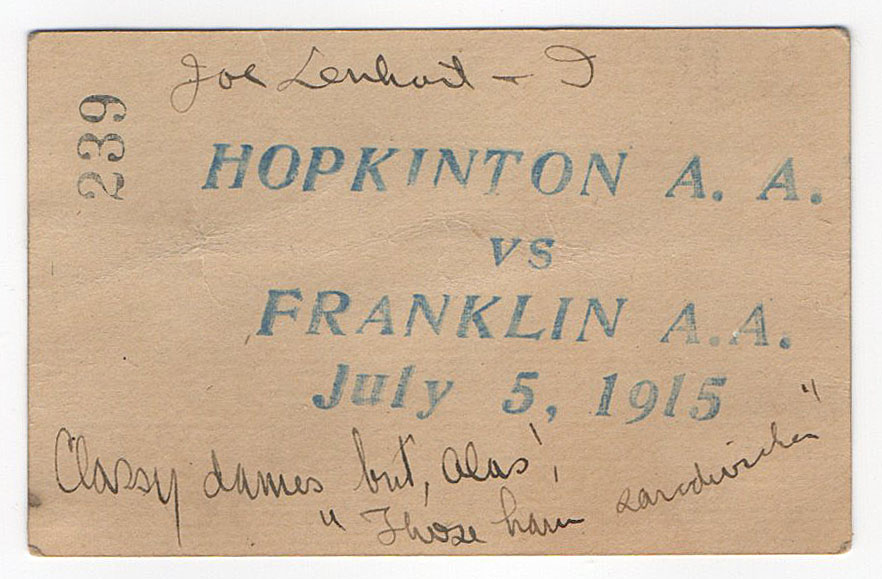 Joe Lenhart - I
239
HOPKINTON A. A.
vs
FRANKLIN A.A.
July 5, 1915
Classy dames but, alas!,
"Those ham sandwiches"